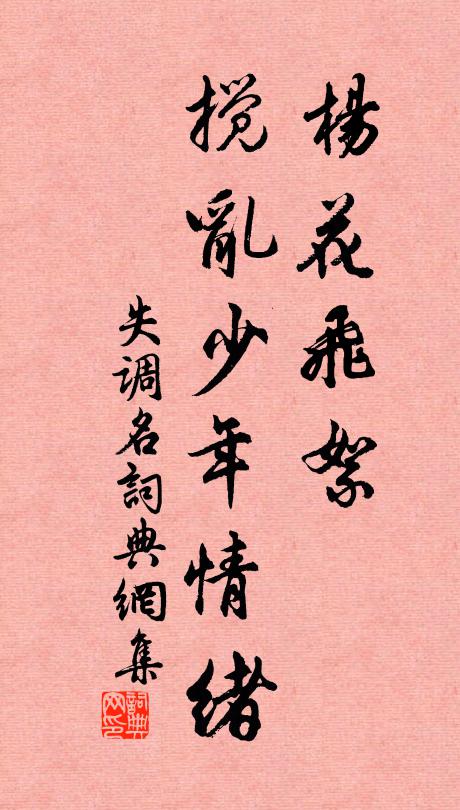 楊花飛絮
攪亂少年情緒
失调名詞典網集
詞典网印